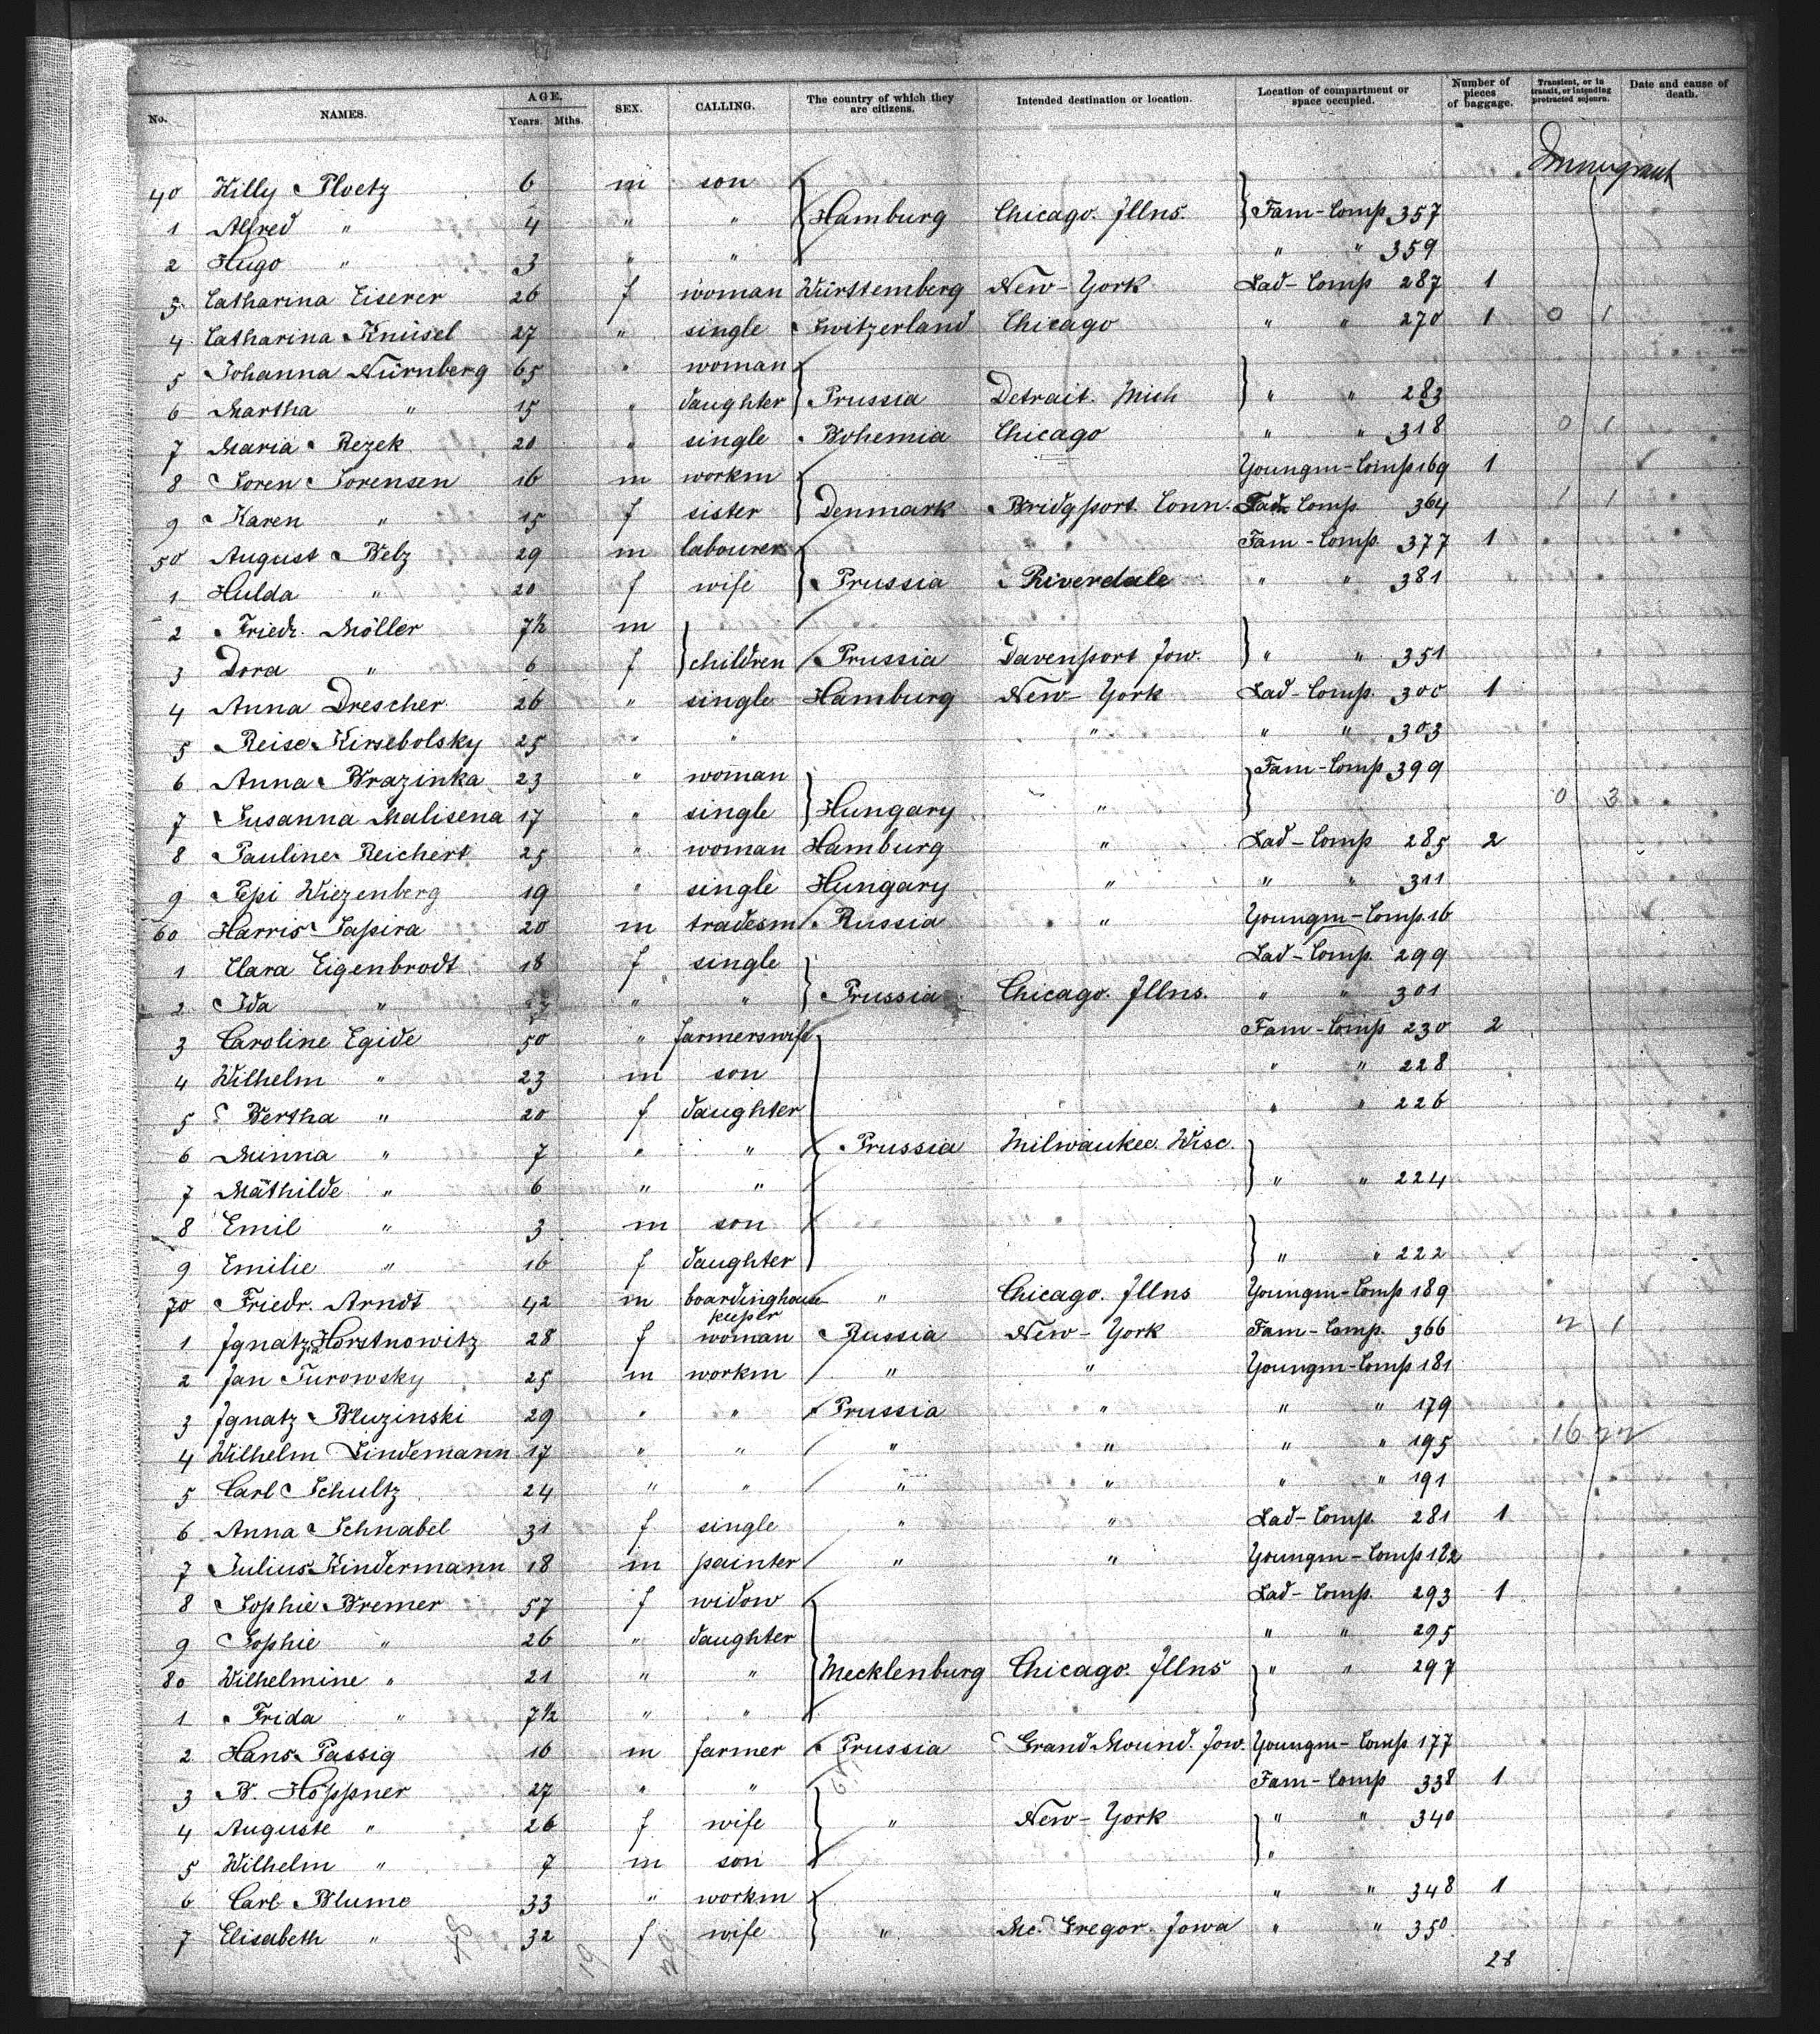 No. NAMES. AGE. Years. Mths. SEX. CALLING. The country of which they are citizens. Intended destination or location. Location of compartment or space occupied. Number of pieces of baggage. Transient, or in transit, or intending protracted sojourn. Date and cause of death.
Immigrant
40 Willy Ploetz 6 m son
1 Alfred " 4 " " Hamburg Chicago. Illns. Fam-Comp 357
2 Hugo " 3 " " " " 359
3 Catharina Eiserer 26 f woman Württemberg New-York Lad-Comp 287 1
4 Catharina Knüsel 27 " single Switzerland Chicago " " 270 1 0 1
5 Johanna Nürnberg 65 " woman
6 Martha " 15 " daughter Prussia Detrait. Mich " " 283
7 Maria Rezek 20 " single Bohemia Chicago " " 318 0 1
8 Soren Sorensen 16 m workm Youngm-Comp 169 1
9 Karen " 15 f sister Denmark Bridgport. Conn. Lad Comp. 364 1 1
50 August Belz 29 m labourer Fam-Comp. 377 1
1 Hulda " 20 f wife Prussia Riverdale " " 381
2 Friedr. Möller 7½ m
3 Dora " 6 f children Prussia Davenport Jow. " " 351
4 Anna Drescher 26 " single Hamburg New-York Lad-Comp. 300 1
5 Reise Kirsebolsky 25 " " " " " 303
6 Anna Brazinka 23 " woman Fam-Comp 399
7 Susanna Malisena 17 " single Hungary " 0 3
8 Pauline Reichert 25 " woman Hamburg " Lad-Comp 285 2
9 Pepi Wiezenberg 19 " single Hungary " " " 311
60 Harris Sapira 20 m tradesm Russia " Youngm-Comp. 16
1 Clara Eigenbrodt 18 f single Lad-Comp. 299
2 Ida " " " Prussia Chicago. Illns. " " 301
3 Caroline Egide 50 " farmerswife Fam-Comp 230 2
4 Wilhelm " 23 m son " " 228
5 Bertha " 20 f daughter " " 226
6 Minna " 7 " " Prussia Milwaukee. Wisc.
7 Mathilde " 6 " " " " 224
8 Emil " 3 m son
9 Emilie " 16 f daughter " " 222
70 Friedr. Arndt 42 m boardinghouse keeper " Chicago. Illns Youngm-Comp 189
1 Ignatz Horstnowitz 28 f woman Russia New-York Fam-Comp. 366 1
2 Jan Turowsky 25 m workm " " Youngm-Comp 181
3 Ignatz Bluzinski 29 " " Prussia " " " 179
4 Wilhelm Lindemann 17 " " " " " " 195 16
5 Carl Schultz 24 " " " " " " 191
6 Anna Schnabel 31 f single " " Lad-Comp. 281 1
7 Julius Kindermann 18 m painter " " Youngm-Comp 182
8 Sophie Bremer 57 f widow Lad-Comp. 293 1
9 Sophie " 26 " daughter " " 295
80 Wilhelmine " 21 " " Mecklenburg Chicago. Illns " " 297
1 Frida " 7½ " "
2 Hans Passig 16 m farmer Prussia Grand Mound. Jow. Youngm-Comp 177
3 B. Höppner 27 " " Fam-Comp 338 1
4 Auguste " 26 f wife " New-York " " 340
5 Wilhelm " 7 m son "
6 Carl Blume 33 " workm " " 348 1
7 Elisabeth " 32 f wife " Mc. Gregor. Jowa " " 350.
28